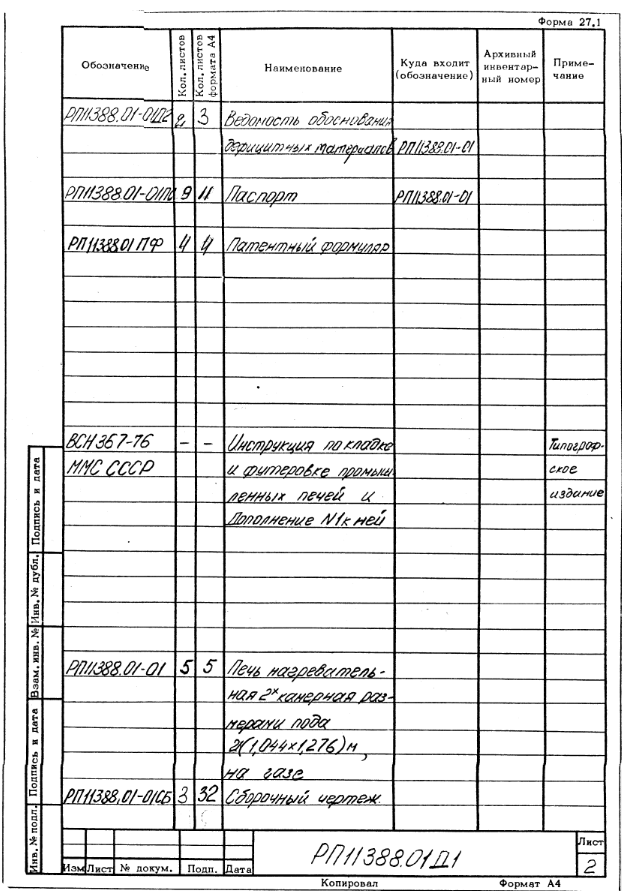 Форма 27.1
Обозначение Кол. листов Кол. листов формата А4 Наименование Куда входит (обозначение) Архивный инвентарный номер Примечание
РП11388.01-01Д2 2 3 Ведомость обоснования
дефицитных материалов РП11388.01-01
РП11388.01-01ПС 9 11 Паспорт РП11388.01-01
РП11388.01ПФ 4 4 Патентный формуляр
ВСН 367-76 - - Инструкция по кладке Типограф-
ММС СССР и футеровке промыш ское
ленных печей и издание
Дополнение N1 к ней
РП11388.01-01 5 5 Печь нагреватель-
ная 2х камерная раз-
мерами пода
2х(1,044х1,276)м,
на газе
РП11388.01-01СБ 3 32 Сборочный чертеж
Инв. № подл. Подпись и дата Взам. инв. № Инв. № дубл. Подпись и дата
РП11388.01Д1
Лист
2
Изм Лист № докум. Подп. Дата
Копировал Формат А4